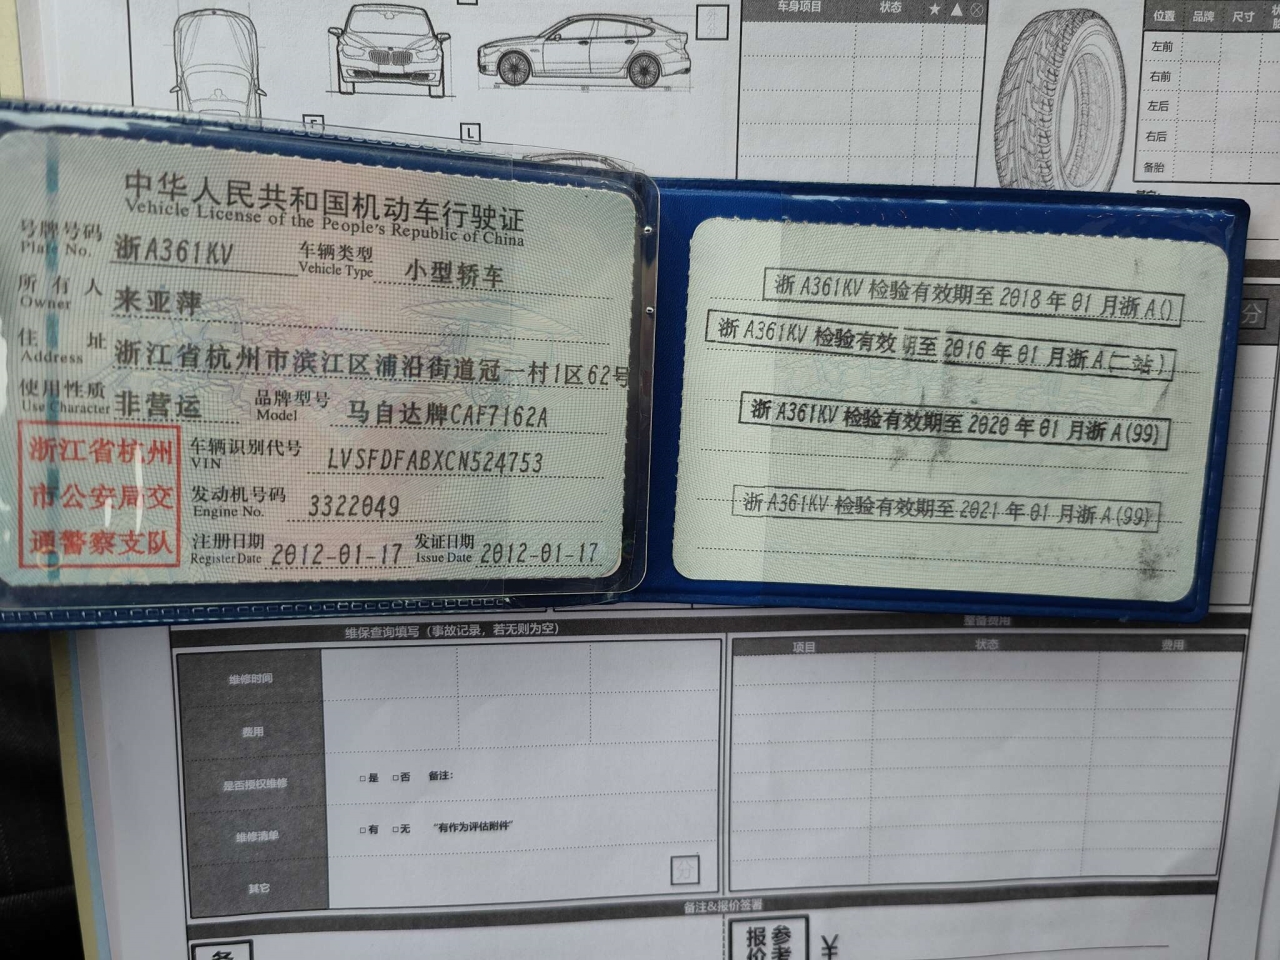 车身项目 状态 ★ ▲ ⊗
位置 品牌 尺寸
左前
右前
左后
右后
备胎
L
中华人民共和国机动车行驶证
Vehicle License of the People's Republic of China
号牌号码 浙A361KV 车辆类型 小型轿车
Plate No. Vehicle Type
所有人 来亚萍
Owner
住址 浙江省杭州市滨江区浦沿街道冠一村1区62号
Address
使用性质 非营运 品牌型号 马自达牌CAF7162A
Use Character Model
浙江省杭州
市公安局交
通警察支队
车辆识别代号 LVSFDFABXCN524753
VIN
发动机号码 3322049
Engine No.
注册日期 2012-01-17 发证日期 2012-01-17
Register Date Issue Date
浙A361KV检验有效期至2018年01月浙A()
浙A361KV检验有效期至2016年01月浙A(二站)
浙A361KV检验有效期至2020年01月浙A(99)
浙A361KV检验有效期至2021年01月浙A(99)
分
维保查询填写（事故记录，若无则为空）
维修时间
费用
是否授权维修 □是 □否 备注：
维修清单 □有 □无 "有作为评估附件"
其它
分
整备费用
项目 状态 费用
备注&报价签署
参考
报价
¥